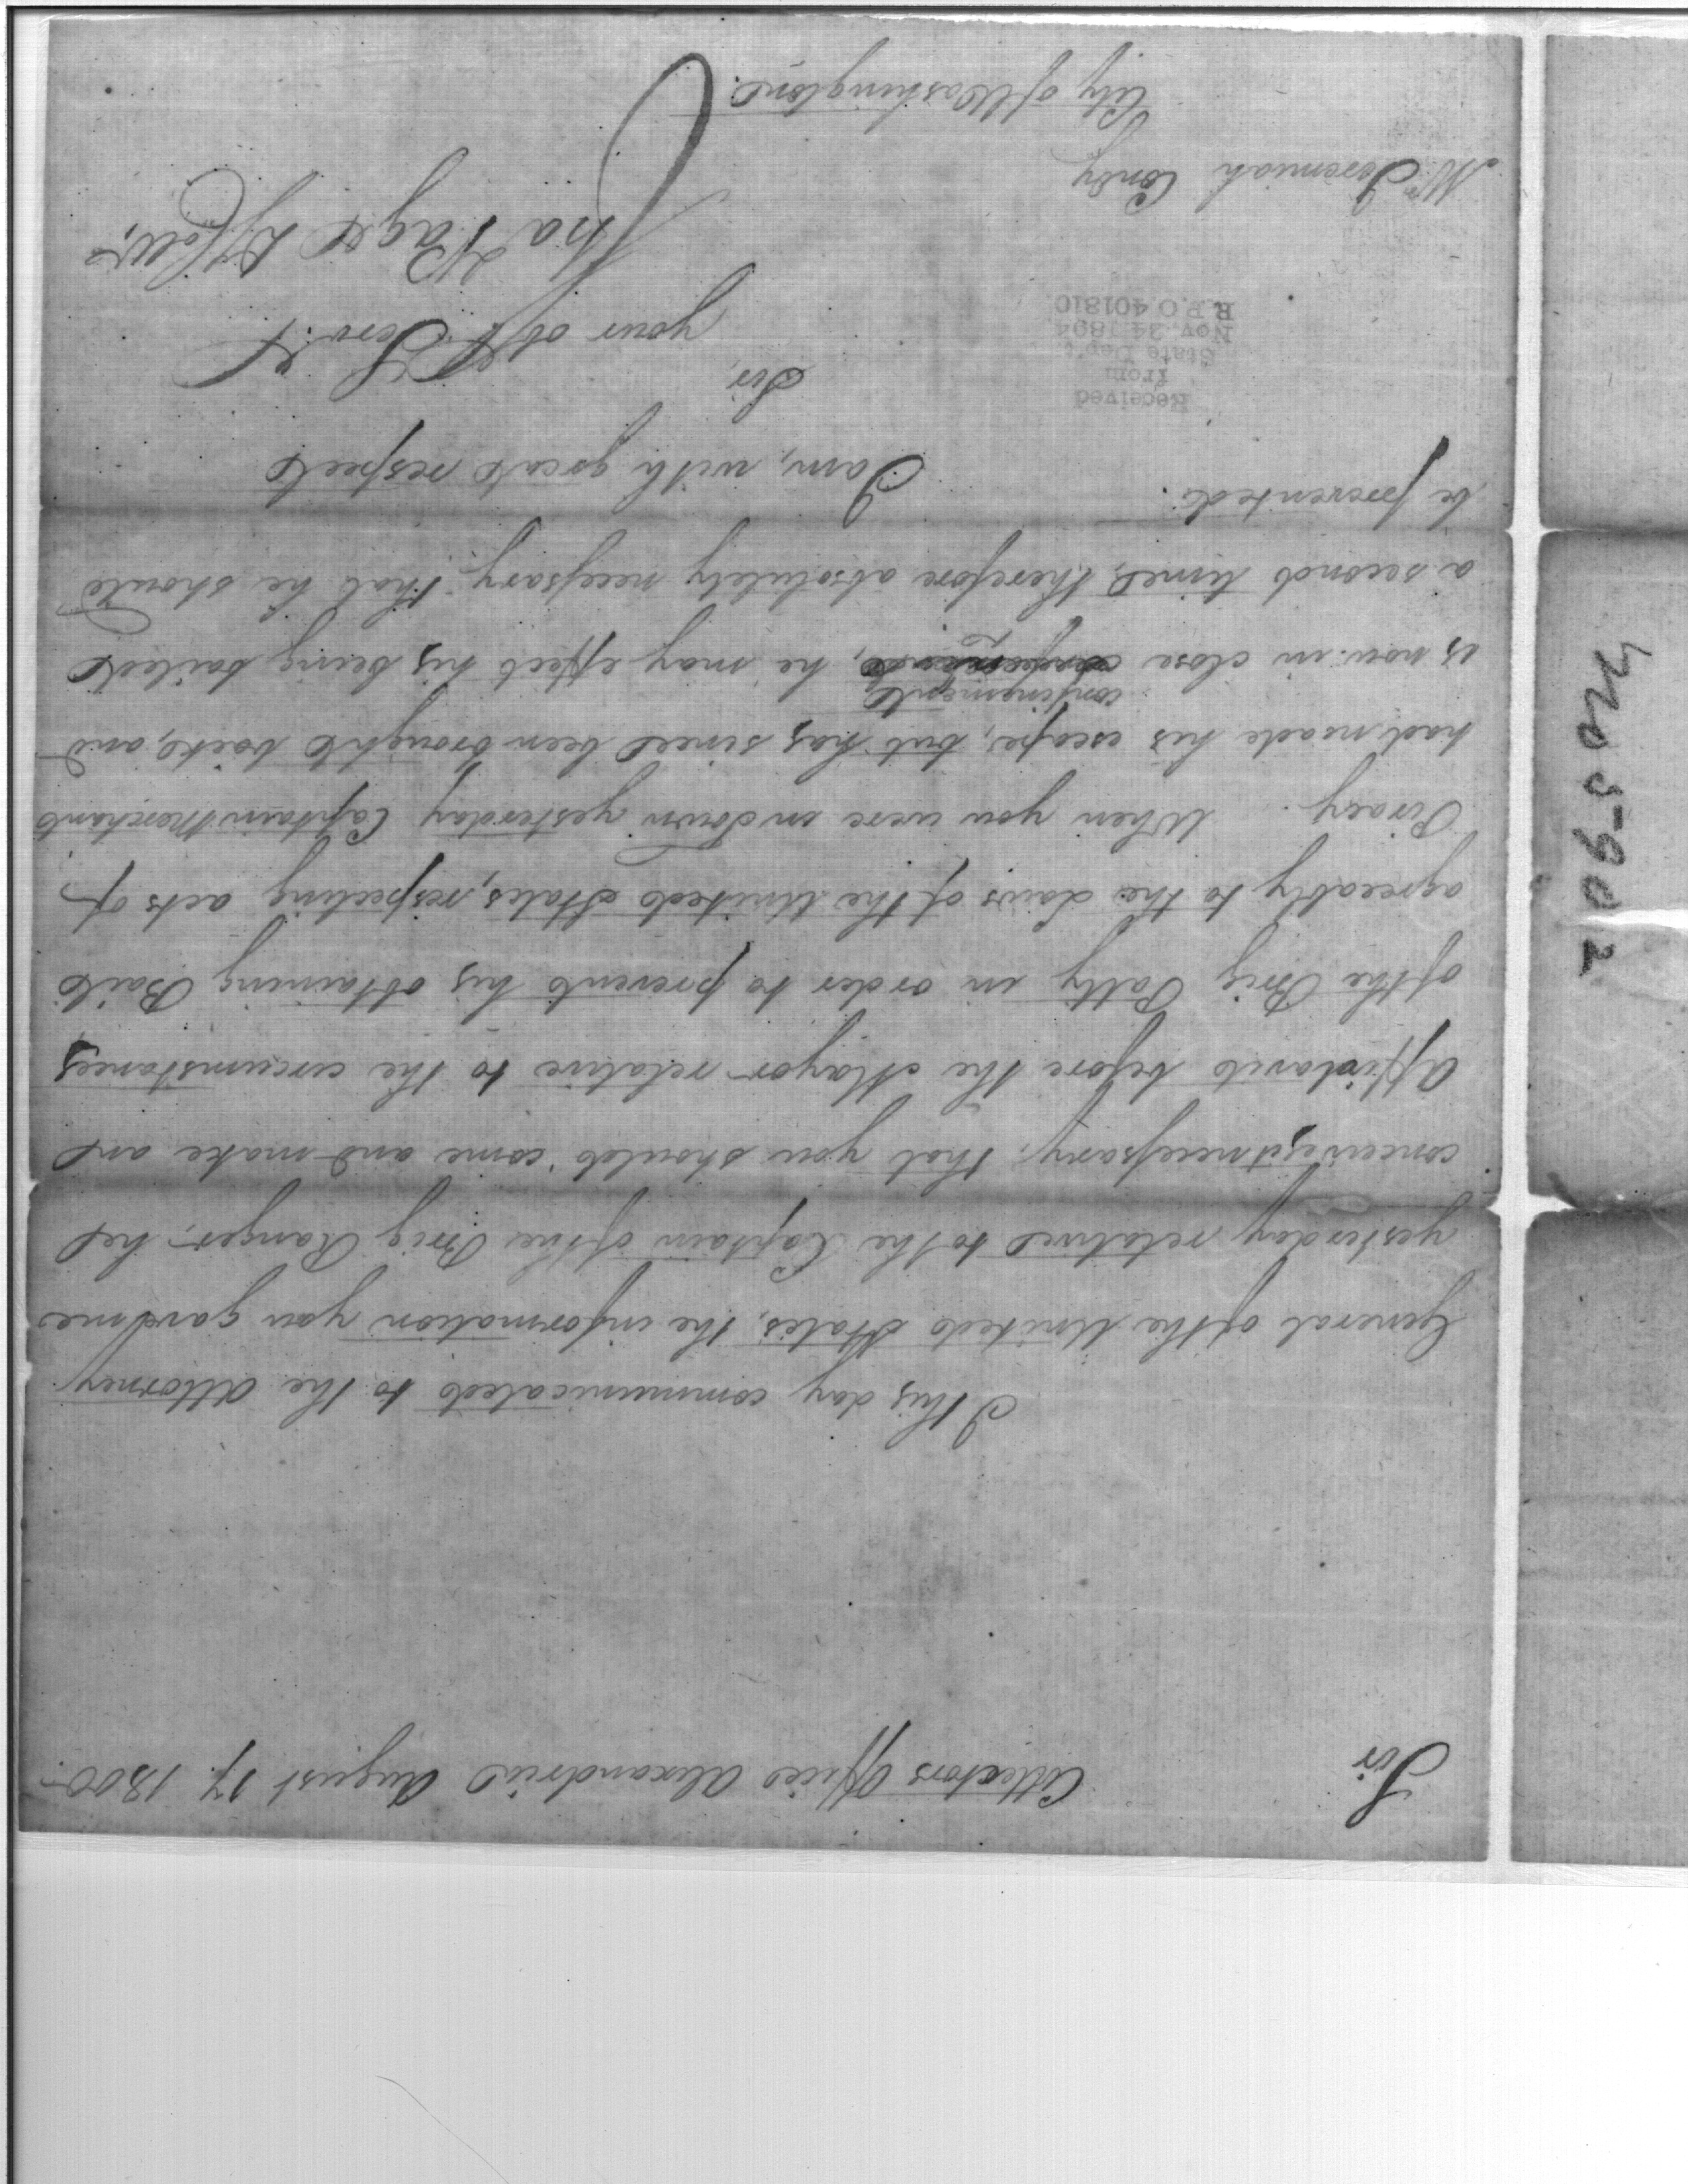 Collectors Office Alexandria August 17. 1800
Sir
I this day communicated to the Attorney
General of the United States, the information you gave me
yesterday relative to the Captain of the Brig Ranger, he
conceives it necessary, that you should come and make an
Affidavit before the Mayor relative to the circumstances
of the Brig Patty in order to prevent his obtaining Bail
agreeably to the Laws of the United States, respecting acts of
Piracy. When you were in Town yesterday Captain Merchant
had made his escape, but has since been brought back, and
confinement
is now in close he may effect his being bailed
a second time, therefore absolutely necessary that he should
be prevented.
I am, with great respect
Sir
your obt. Servt
Page D Coll.
Mr. Jeremiah Condy
City of Washington.
Received
from
State Dep't
Nov. 24 1894
R.P.O. 401810
No 5902